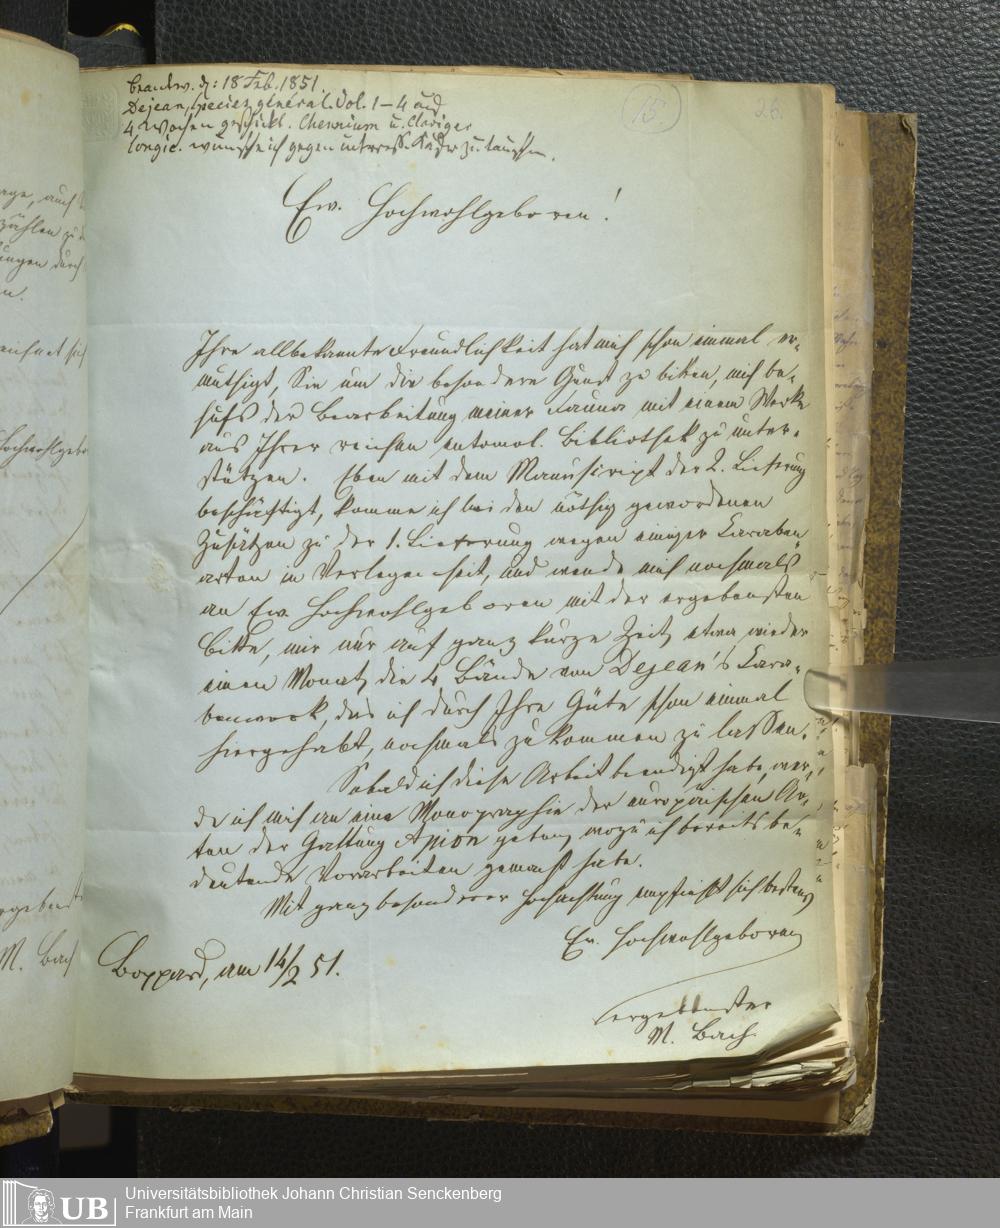 beantw. d: 18 Feb. 1851.
Dejean, Species général. Vol. 1–4 auf
4 Wochen geschickt. Chennium u. Claviger
longic. wünsche ich gegen interess. Käfer zu tauschen.
15
26.
Ew. Hochwohlgeboren!
Ihre allbekannte Freundlichkeit hat mich schon einmal er-
muthigt, Sie um die besondere Gunst zu bitten, mich be-
hufs der Bearbeitung meiner Fauna mit einem Werke
aus Ihrer reichen entomol. Bibliothek zu unter-
stützen. Eben mit dem Manuscript der 2. Lieferung
beschäftigt, komme ich bei den nöthig gewordenen
Zusätzen zu der 1. Lieferung wegen einiger Caraben-
arten in Verlegenheit, und wende mich nochmals
an Ew. Hochwohlgeboren mit der ergebensten
Bitte, mir nur auf ganz kurze Zeit, etwa wieder
einen Monat, die 4 Bände von Dejean's Cara-
benwerk, das ich durch Ihre Güte schon einmal
hiergehabt, nochmals zukommen zu lassen.
Sobald ich diese Arbeit beendigt habe, wer-
de ich mich an eine Monographie der europäischen Ar-
ten der Gattung Apion geben, wozu ich bereits be-
deutende Vorarbeiten gemacht habe.
Mit ganz besonderer Hochachtung empfiehlt sich bestens
Ew. Hochwohlgeboren
Boppard, am 14/2 51.
ergebenster
M. Bach.
age, auch
zählen zu
ungen durch
n.
Hochwohlgebo
ergebenst
M. Bach
UB
Universitätsbibliothek Johann Christian Senckenberg
Frankfurt am Main